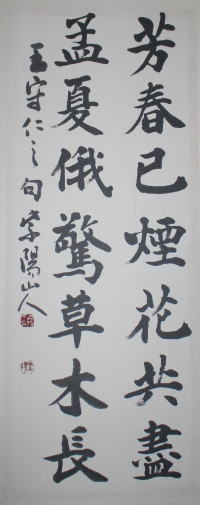 芳春已煙花共盡
孟夏俄驚草木長
王守仁之句 紫陽山人